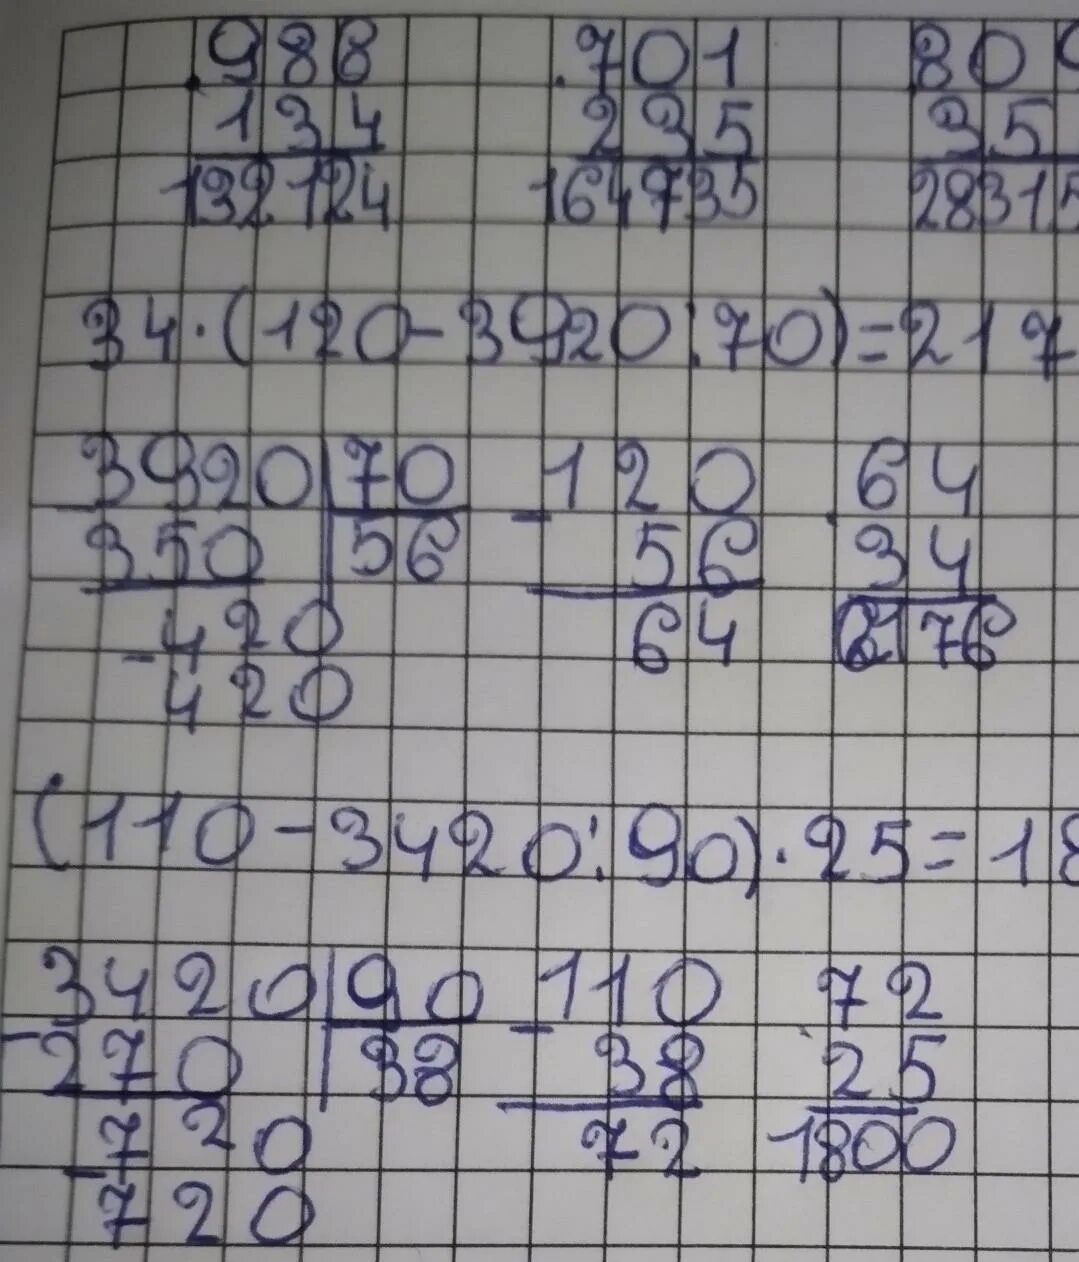 988 701 809
134 235 35
132124 164735 28315
34·(120-3920:70)=217
3920 70 120 64
350 56 56 34
420 64 2176
420
(110-3420:90)·25=18
3420 90 -110 72
-270 38 38 25
720 72 1800
-720